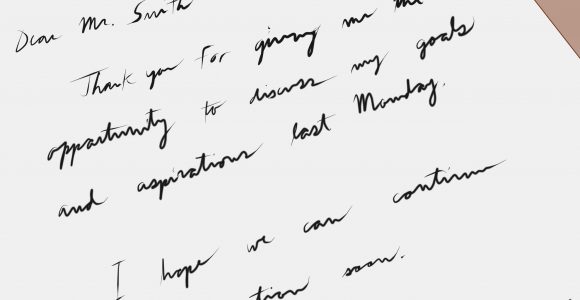 Dear Mr. Smith
Thank you for giving me the
opportunity to discuss my goals
and aspirations last Monday.
I hope we can continue
soon.